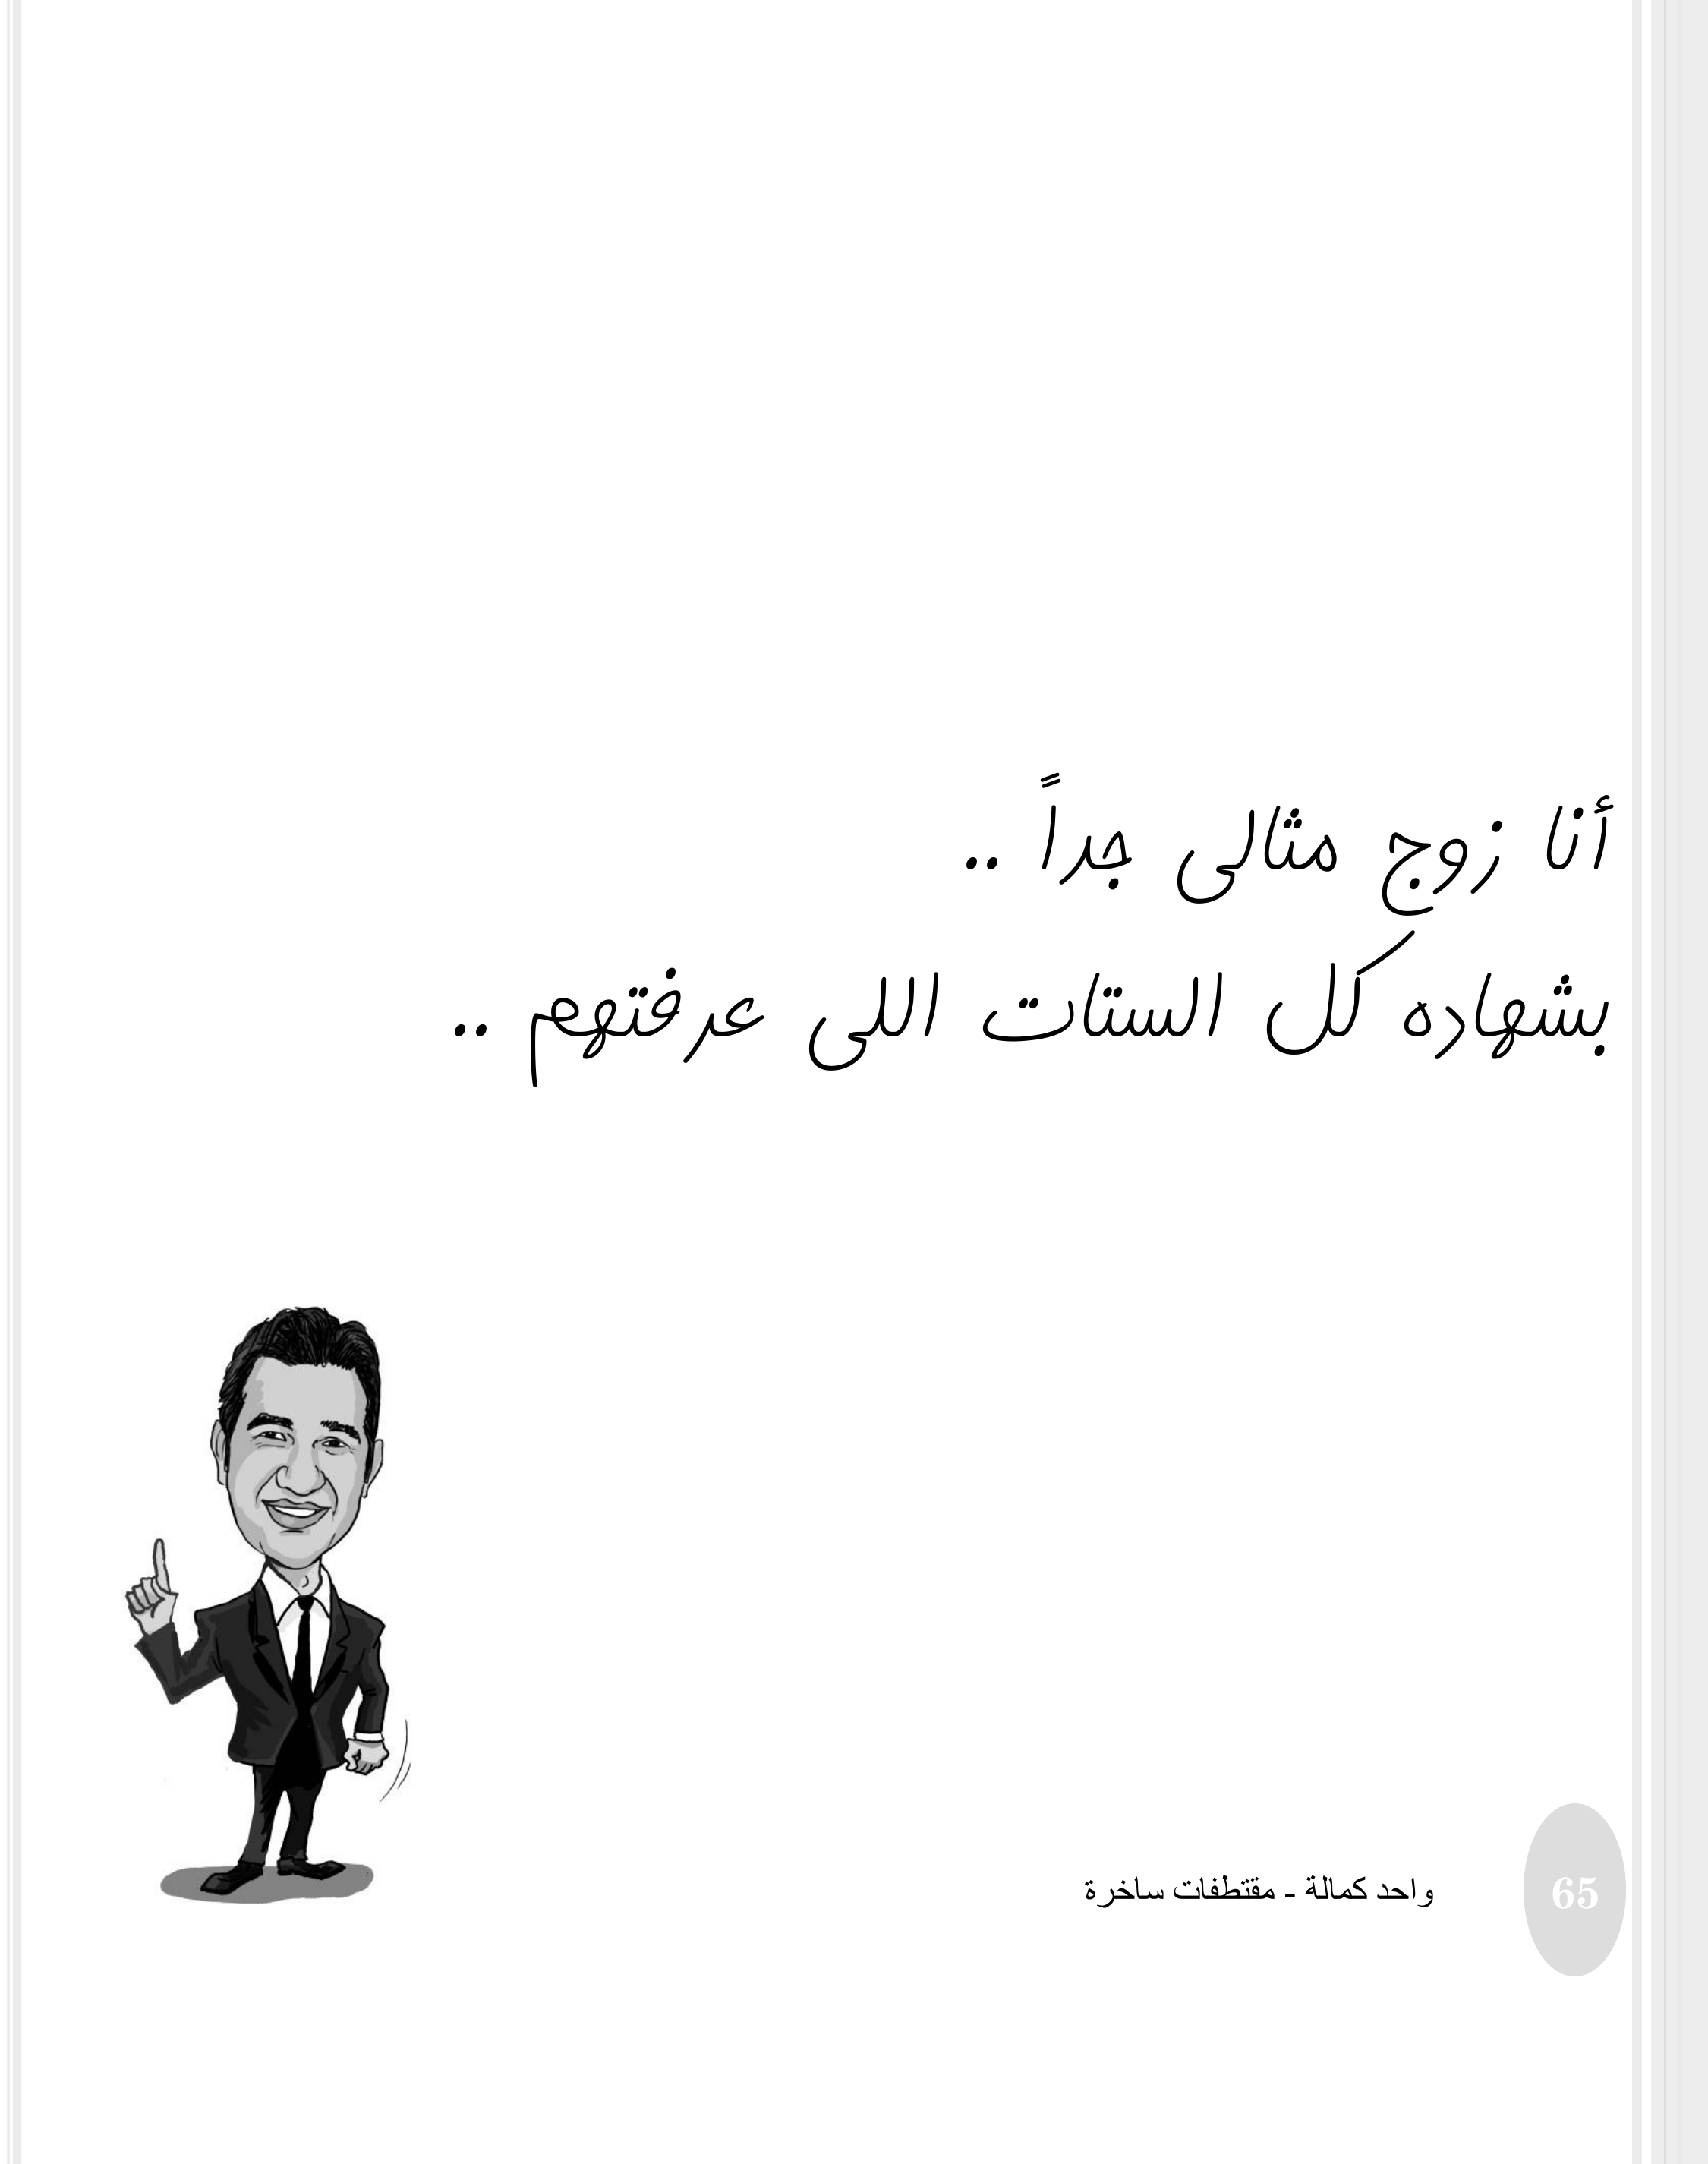 أنا زوج مثالى جداً ..
بشهاده كل الستات اللى عرفتهم ..
واحد كمالة - مقتطفات ساخرة
65